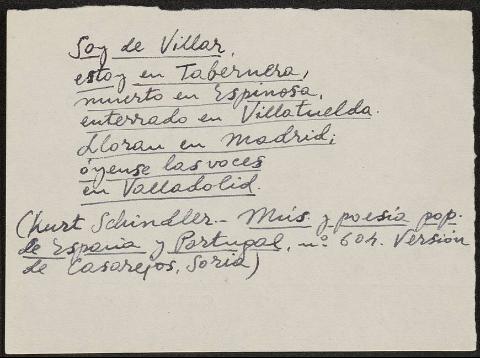 Soy de Villar,
estoy en Tabernera,
muerto en Espinosa,
enterrado en Villatuelda.
Lloran en Madrid;
óyense las voces
en Valladolid.
(Kurt Schindler.- Mús. y poesía pop.
de España y Portugal, nº 604. Versión
de Casarejos, Soria)